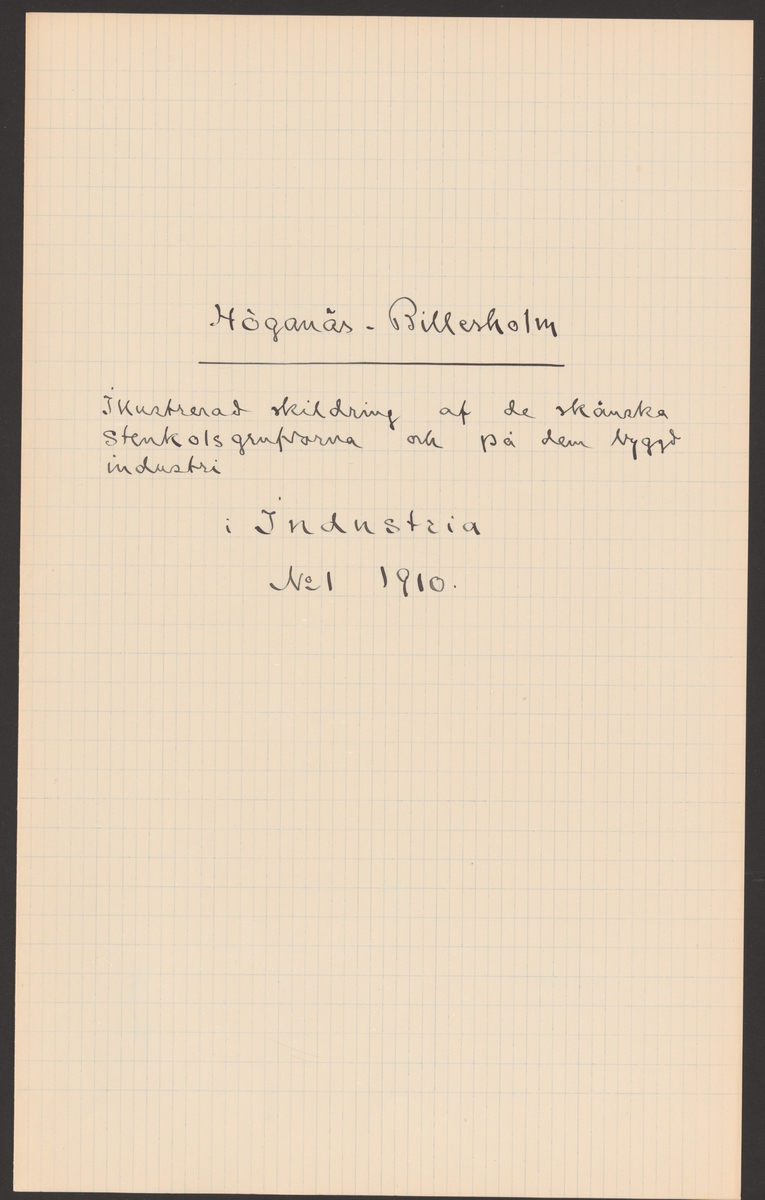 Höganäs - Billesholm
Illustrerad skildring af de skånska
Stenkolsgrufvorna och på dem byggd
industri
i Industria
No 1 1910.